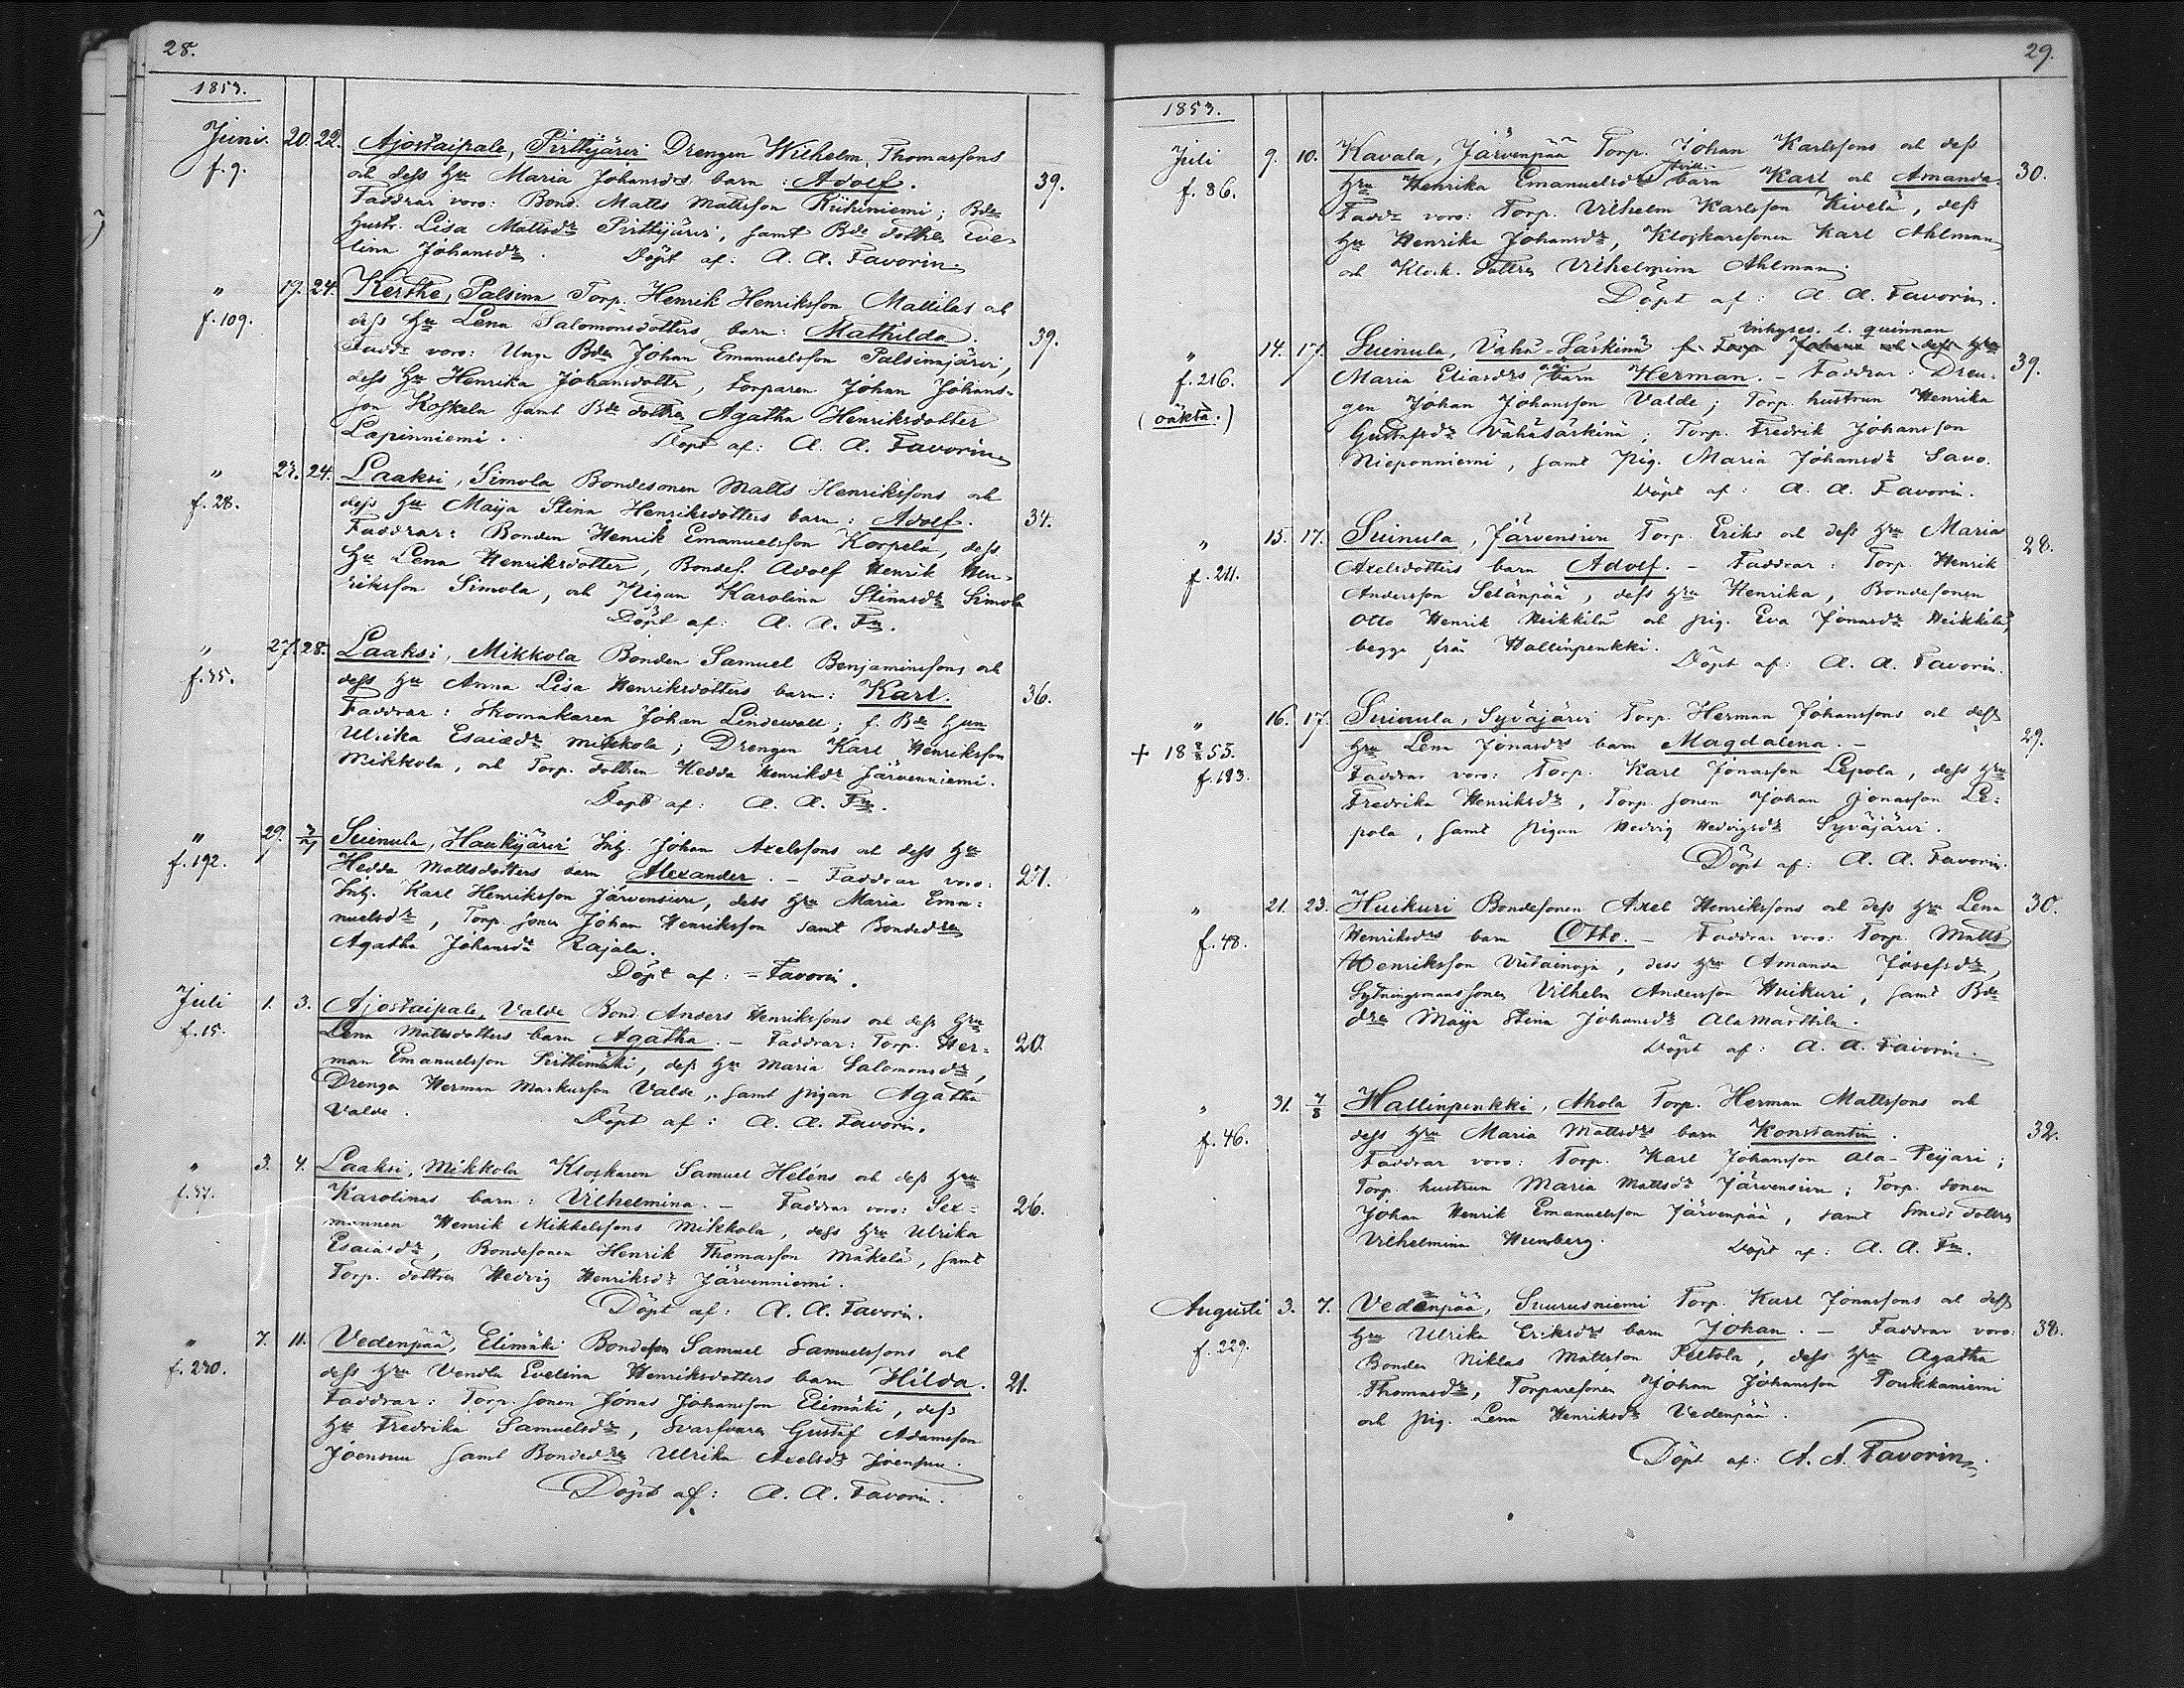 28.
1853.
Junis. 20. 22. Ajostaipale, Pirttijärvi Drengen Wilhelm Thomassons
f. 9. och dess Hu Maria Johansdrs barn: Adolf. 39.
Faddrar voro: Bond. Matts Mattsson Riihiniemi; Bde
hustr. Lisa Mattsdr Pirttijärvi, samt Bde dottren Eve-
lina Johansdr. Döpt af: A. A. Favorin.
" 19. 24. Kerthe, Palsina Torp. Henrik Henriksson Mattilas och
f. 109. dess Hu Lena Salomonsdotters barn: Mathilda. 39.
Faddr voro: Unge Bdn Johan Emanuelsson Palsinajärvi,
dess Hu Henrika Johansdotter, torparen Johan Johans-
son Koskela samt Bde dottren Agatha Henriksdotter
Lapinniemi. Döpt af: A. A. Favorin
" 23. 24. Laaksi, Simola Bondesonen Matts Henrikssons och
f. 28. dess Hu Maija Stina Henriksdotters barn: Adolf. 34.
Faddrar: Bonden Henrik Emanuelsson Korpela, dess
Hu Lena Henriksdotter, Bondes. Adolf Henrik Hen-
riksson Simola, och Pigan Karolina Stinasdr Simola
Döpt af: A. A. Fn.
" 27. 28. Laaksi, Mikkola Bonden Samuel Benjaminssons och
f. 35. dess Hu Anna Lisa Henriksdotters barn: Karl. 36.
Faddrar: Skomakaren Johan Lindewall; f. Bde Hun
Ulrika Esaiædr Mikkola; Drengen Karl Henriksson
Mikkola, och Torp. dottren Hedda Henriksdr Järvenniemi.
Döpt af: A. A. Fn.
" 29. 3/7 Suinula, Haukijärvi Inh. Johan Axelssons och dess Hu
f. 192. Hedda Mattsdotters barn Alexander. – Faddrar voro: 27.
Inh. Karl Henriksson Järvensivu, dess Hru Maria Ema-
nuelsdr, Torp. sonen Johan Henriksson samt Bondedren
Agatha Johansdr Rajala.
Döpt af: = Favorin.
Juli 1. 3. Ajostaipale, Valde Bond. Anders Henrikssons och dess Hru
f. 15. Lena Mattsdotters barn Agatha. – Faddrar: Torp. Her- 20.
man Emanuelsson Pirttimäki, dess Hu Maria Salomonsdr,
Drengen Herman Markusson Valde, samt pigan Agatha
Valde. Döpt af: A. A. Favorin.
" 3. 4. Laaksi, Mikkola Klockaren Samuel Heléns och dess Hru
f. 37. Karolinas barn: Vilhelmina. – Faddrar voro: Sex- 26.
mannen Henrik Mikkelssons Mikkola, dess Hru Ulrika
Esaiasdr, Bondesonen Henrik Thomasson Mäkelä, samt
Torp. dottren Hedvig Henriksdr Järvenniemi.
Döpt af: A. A. Favorin.
" 7. 11. Vedenpää, Elimäki Bondeson Samuel Samuelssons och
f. 230. dess Hru Vendla Evelina Henriksdotters barn Hilda. 21.
Faddrar: Torp. sonen Jonas Johansson Elimäki, dess
Hu Fredrika Samuelsdr, Svarfvaren Gustaf Adamsson
Joensuu samt Bondedrn Ulrika Axelsdr Joensuu.
Döpt af: A. A. Favorin.
29.
1853.
Juli 9. 10. Kavala, Järvenpää Torp. Johan Karlssons och dess
f. 86. Hru Henrika Emanuelsdrs tvill. barn Karl och Amanda. 30.
Faddr voro: Torp. Vilhelm Karlsson Kivelä, dess
Hu Henrika Johansdr, Klockaresonen Karl Ahlman
och Klock. dottren Vilhelmina Ahlman.
Döpt af: A. A. Favorin.
Inhyses. l. quinnan
" 14. 17. Suinula, Vähä-Särkinä f. Torp Johans och dess Hru
f. 216. Maria Eliasdrs barn Herman. – Faddrar: Dren- 39.
(oäkta.) gen Johan Johansson Valde; Torp. hustrun Henrika
Gustafsdr Vähäsärkinä; Torp. Fredrik Johansson
Nieponniemi, samt Pig. Maria Johansdr Savo.
Döpt af: A. A. Favorin.
" 15. 17. Suinula, Järvensivu Torp. Eriks och dess Hru Maria
f. 211. Axelsdotters barn Adolf. – Faddrar: Torp. Henrik 28.
Andersson Selänpää, dess Hru Henrika, Bondesonen
Otto Henrik Heikkilä och pig. Eva Jonasdr Heikkilä,
begge från Hallinpenkki. Döpt af: A. A. Favorin.
" 16. 17. Suinula, Syväjärvi Torp. Herman Johanssons och dess
+ 18 53. Hru Lena Jonasdrs barn Magdalena. – 29.
f. 193. Faddrar voro: Torp. Karl Jonasson Lepola, dess Hru
Fredrika Henriksdr, Torp. sonen Johan Jonasson Le-
pola, samt pigan Hedvig Hedvigsdr Syväjärvi.
Döpt af: A. A. Favorin.
" 21. 23. Huikuri Bondesonen Axel Henrikssons och dess Hru Lena 30.
f. 48. Henriksdrs barn Otto. – Faddrar voro: Torp. Matts
Henriksson Viitainoja, dess Hru Amanda Josefsdr,
Sytningsmanssonen Vilhelm Andersson Huikuri, samt Bde
drn Maija Stina Johansdr Alamarttila.
Döpt af: A. A. Favorin.
" 31. 7/8 Hallinpenkki, Ahola Torp. Herman Mattssons och
f. 46. dess Hru Maria Mattsdrs barn Konstantin. 32.
Faddrar voro: Torp. Karl Johansson Ala-Peijari;
Torp. hustrun Maria Mattsdr Järvensivu; Torp. sonen
Johan Henrik Emanuelsson Järvenpää, samt Smeds dottren
Vilhelmina Hunsberg. Döpt af: A. A. Fn.
Augusti 3. 7. Vedenpää, Suurusniemi Torp. Karl Jonassons och dess
f. 229. Hru Ulrika Eriksdrs barn Johan. – Faddrar voro: 38.
Bonden Niklas Mattsson Peltola, dess Hru Agatha
Thomasdr, Torparesonen Johan Johansson Poukkaniemi
och pig. Lena Henriksdr Vedenpää.
Döpt af: A. A. Favorin.